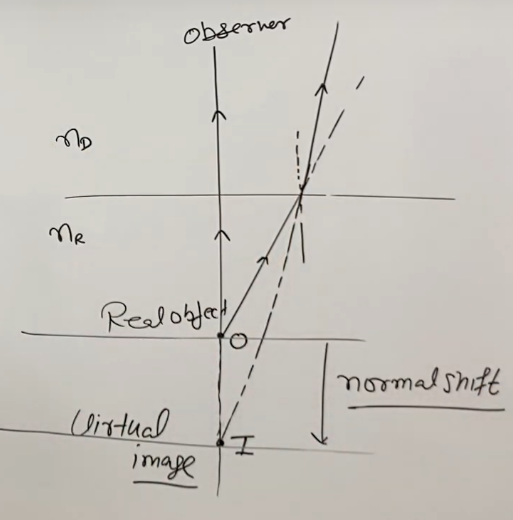 Observer
n_D
n_R
Real object
O
normal shift
Virtual
image
I